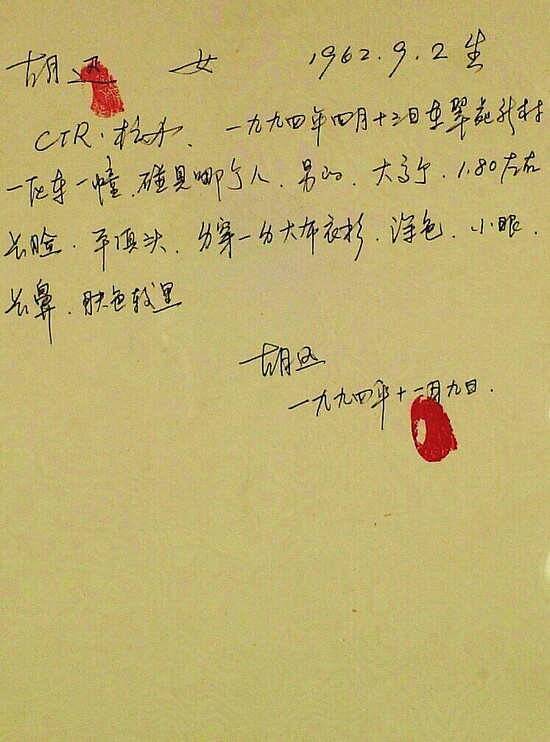 胡 女 1962.9.2生
CTR. 一九九四年四月十三日在翠苑新村
一区车一幢.碰见哪个人、男的、大高个.1.80左右
长脸.平顶头、身穿一身大布衣衫.深色.小眼.
长鼻.肤色较黑
胡
一九九四年十一月九日.